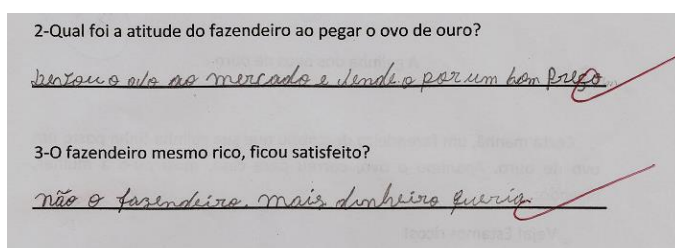 2-Qual foi a atitude do fazendeiro ao pegar o ovo de ouro?
o ovo ao mercado e vende o por um bom preço
3-O fazendeiro mesmo rico, ficou satisfeito?
não o fazendeiro. mais dinheiro queria